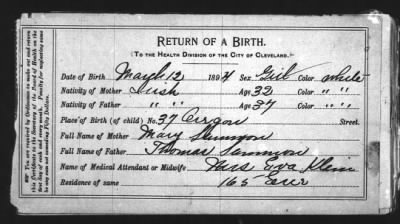 RETURN OF A BIRTH.
(TO THE HEALTH DIVISION OF THE CITY OF CLEVELAND.)
Date of Birth March 12 1894 Sex Girl Color white
Nativity of Mother Irish Age 32 Color " "
Nativity of Father " " Age 37 Color " "
Place of Birth (of child) No. 37 Street.
Full Name of Mother Mary
Full Name of Father Thomas
Name of Medical Attendant or Midwife Mrs Eva Klein
Residence of same 165
You are required by Ordinance to make out and return
this Certificate to the Secretary of the Board of Health on the
first day of each and every month. Penalty for neglecting same
by any one not exceeding Fifty Dollars.